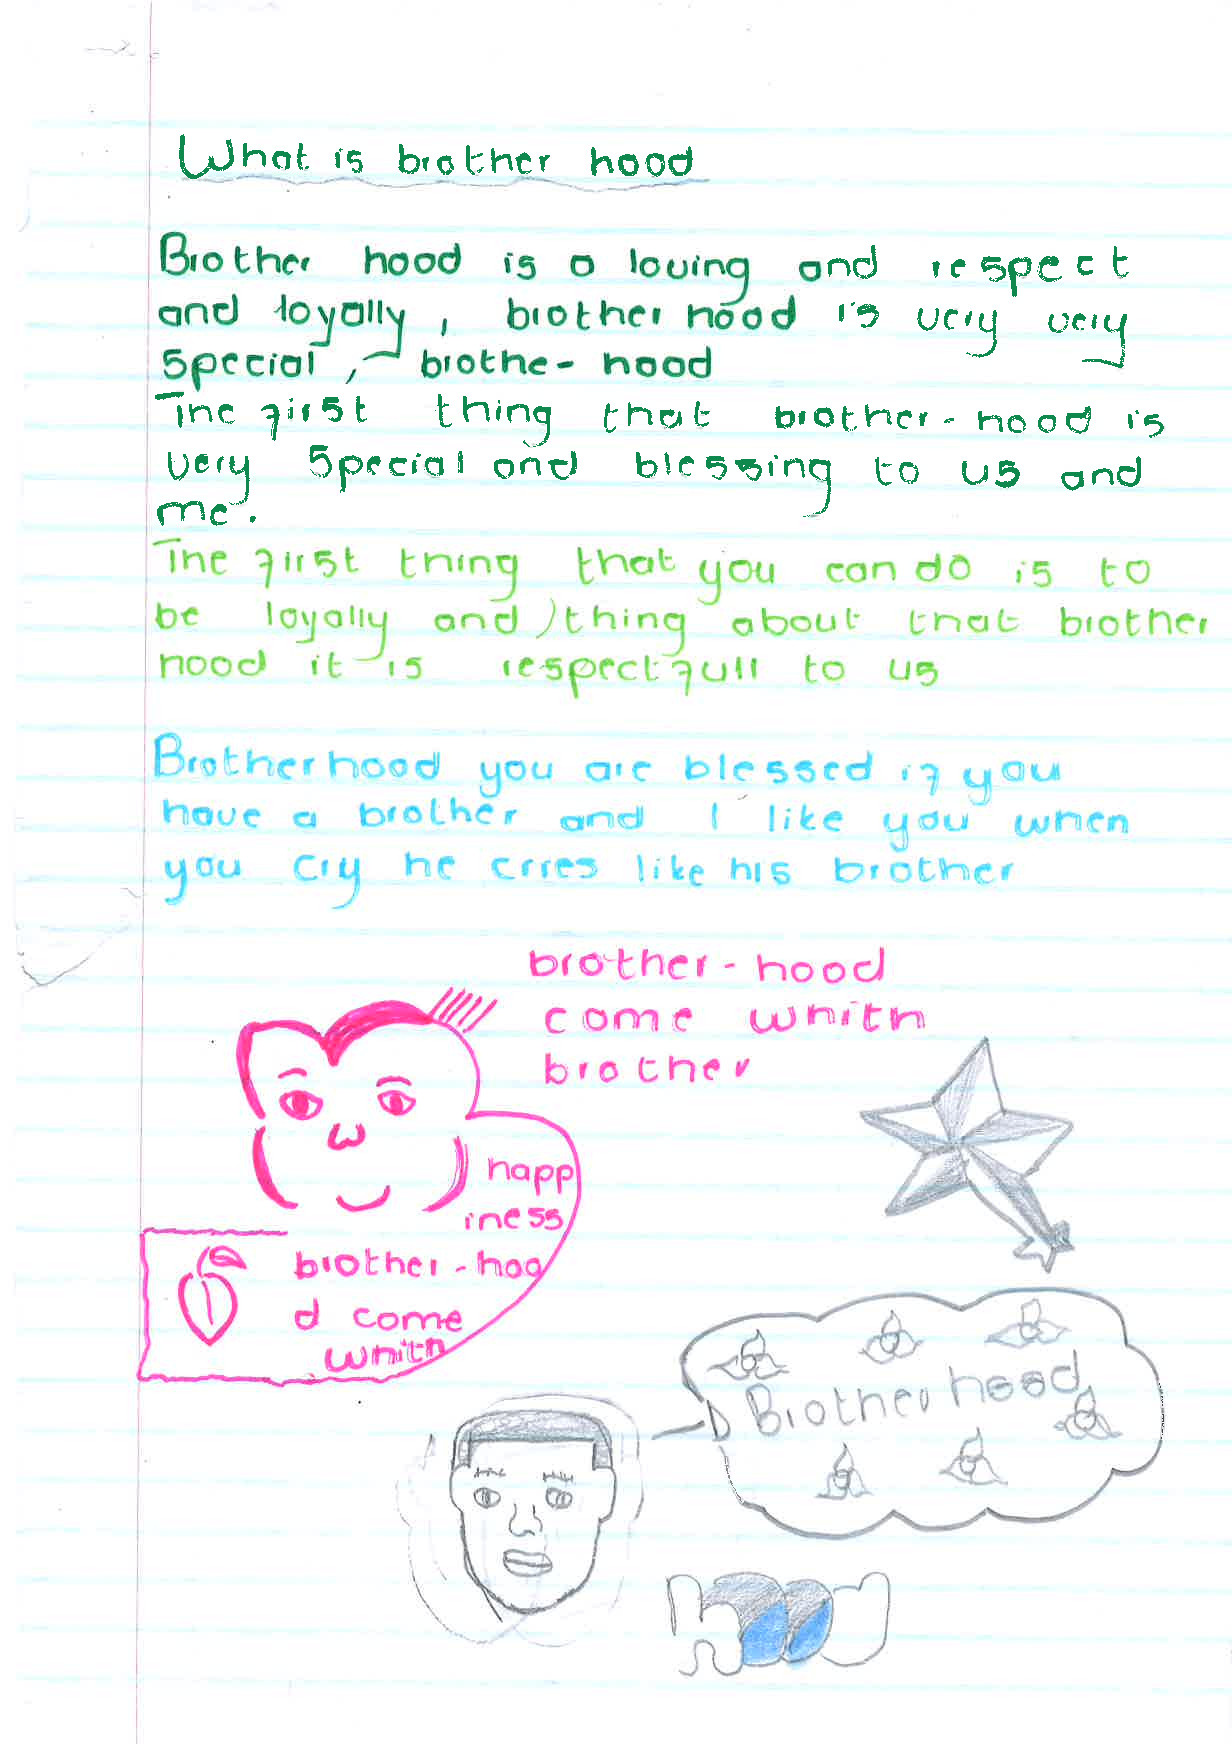 What is brother hood
Brother hood is a loving and respect
and loyally, brother hood is very very
special, brothe- hood
The first thing that brother-hood is
very special and blessing to us and
me.
The first thing that you can do is to
be loyally and thing about that brother
hood it is respectfull to us
Brotherhood you are blessed if you
have a brother and I like you when
you cry he cries like his brother
brother-hood
come whith
brother
happ
iness
brother-hoo
d come
whith
Brotherhood
hood